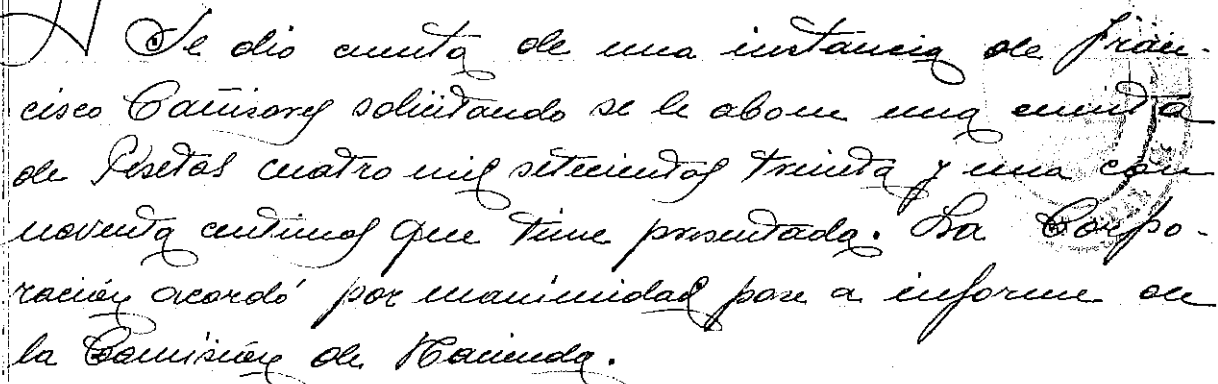 Se dio cuenta de una instancia de Fran-
cisco Cañisares solicitando se le abone una cuenta
de Pesetas cuatro mil setecientas treinta y una con
noventa centimos que tiene presentada. La Corpo-
ración acordó por unanimidad pase a informe de
la Comisión de Hacienda.